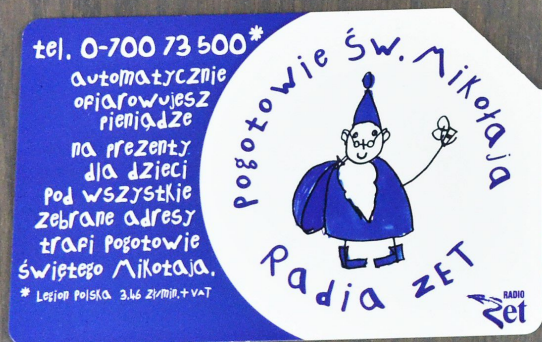 tel. 0-700 73 500*
automatycznie
ofiarowujesz
pieniądze
na prezenty
dla dzieci
pod wszystkie
zebrane adresy
trafi pogotowie
świętego Mikołaja.
* Legion Polska 3.66 zł/min.+VAT
pogotowie Św. Mikołaja
Radia ZET
RADIO
Zet